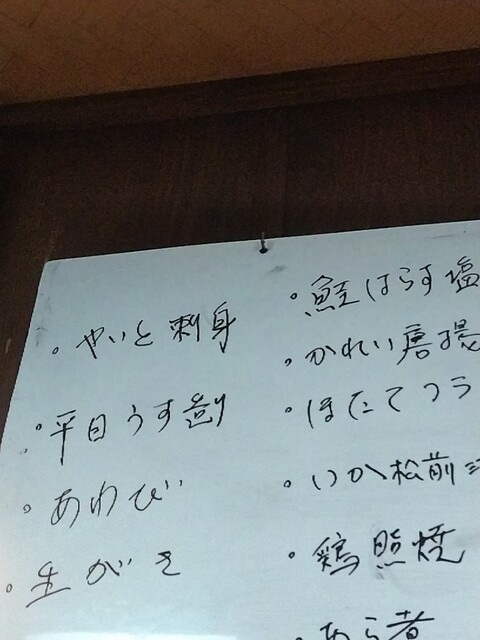 ・やいと刺身
・平目うす造り
・あわび
・生がき
・鮭はらす塩
・かれい唐揚
・ほたてフラ
・いか松前
・鶏照焼
・あら煮